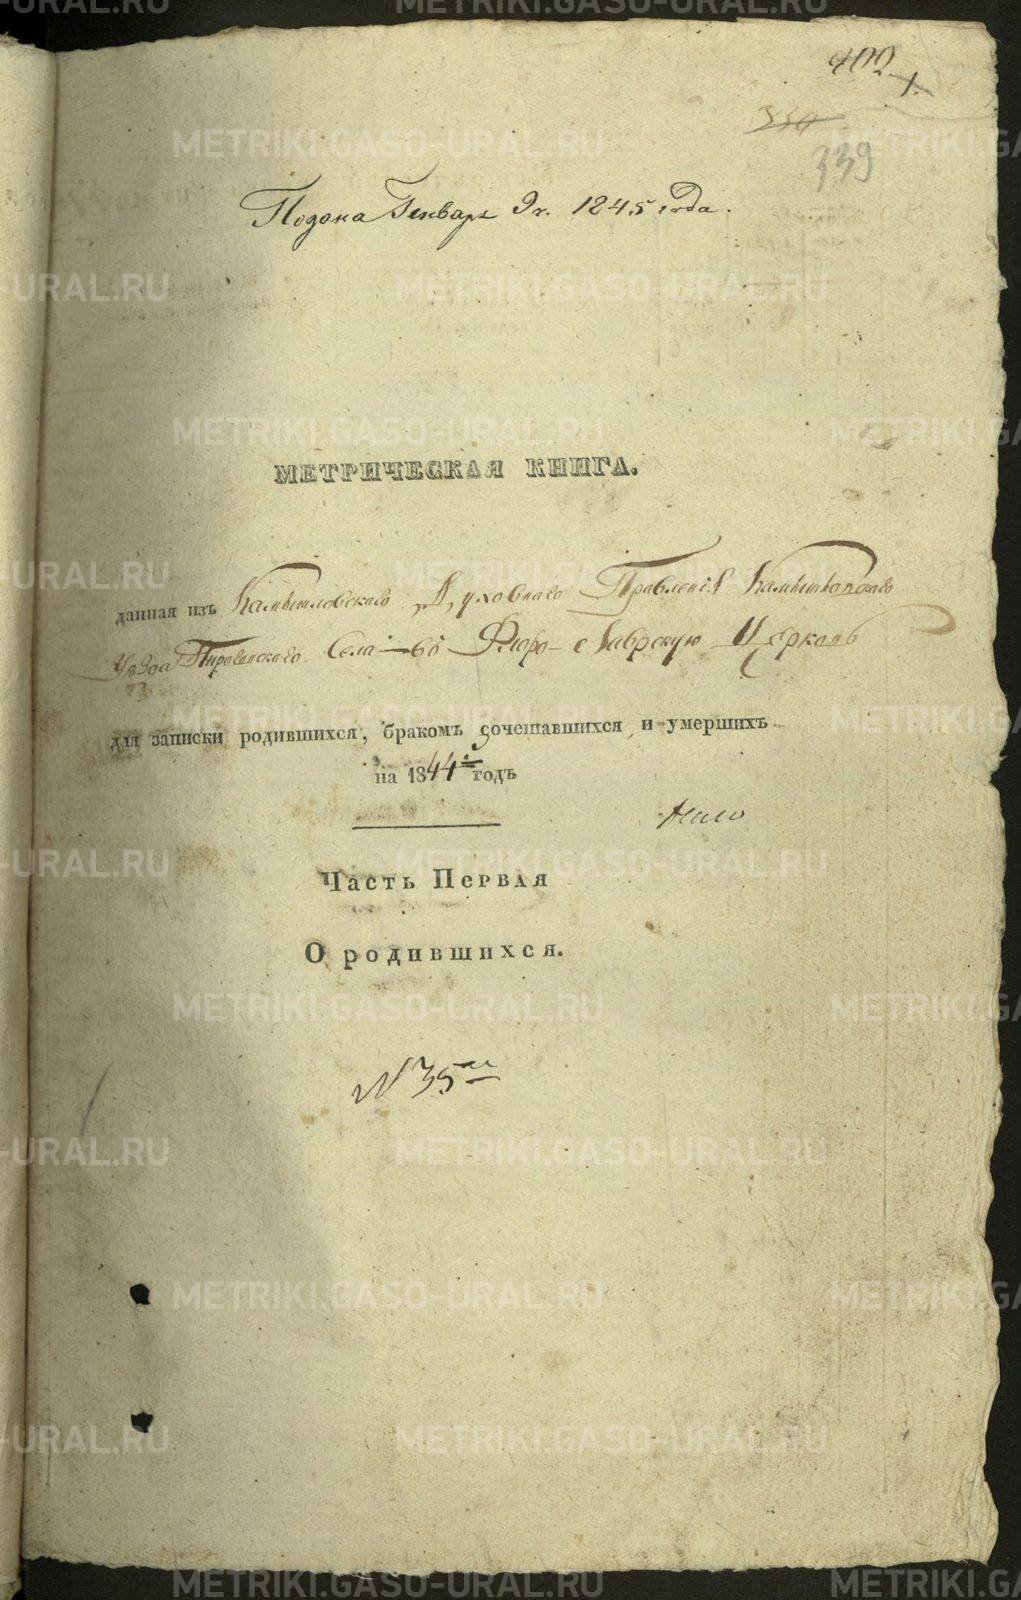 402
1.
330
339
Подана Генваря 9 ч. 1845 года.
МЕТРИЧЕСКАЯ КНИГА.
данная изъ Камышловскаго Духовнаго Правленія Камышловскаго
Уѣзда Пироговскаго Села въ Флоро-Лаврскую Церковь
для записки родившихся, бракомъ сочетавшихся, и умершихъ
на 1844й годъ
Часть Первая
О родившихся.
N 35й
METRIKI.GASO-URAL.RU